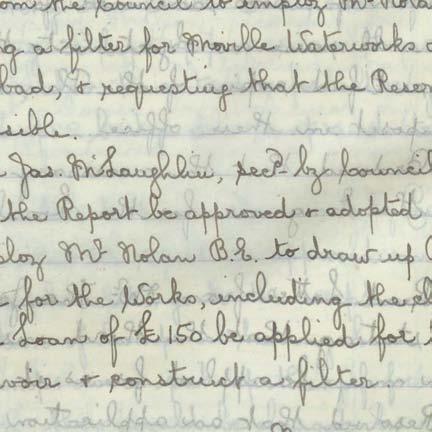 the Council to employ Mr Nolan
g a filter for Moville Waterworks
bad, & requesting that the Reser
sible.
Jas. McLaughlin, secd by Council
the Report be approved & adopted
loy Mr Nolan B.E. to draw up
for the Works, including the cl
Loan of £150 be applied for
voir & construct a filter.